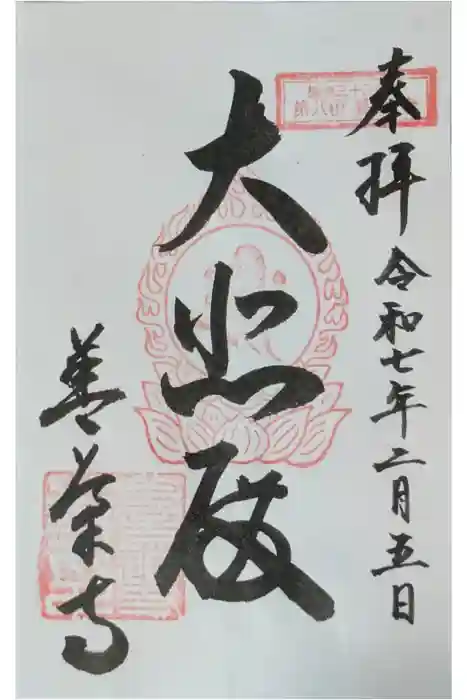 奉拝 令和七年二月五日
大悲殿
善栄寺